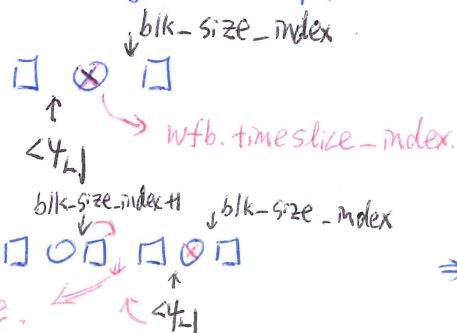 blk_size_index
wfb.timeslice_index.
<Ψ_L|
blk_size_index+1
blk_size_index
e.
<Ψ_L|